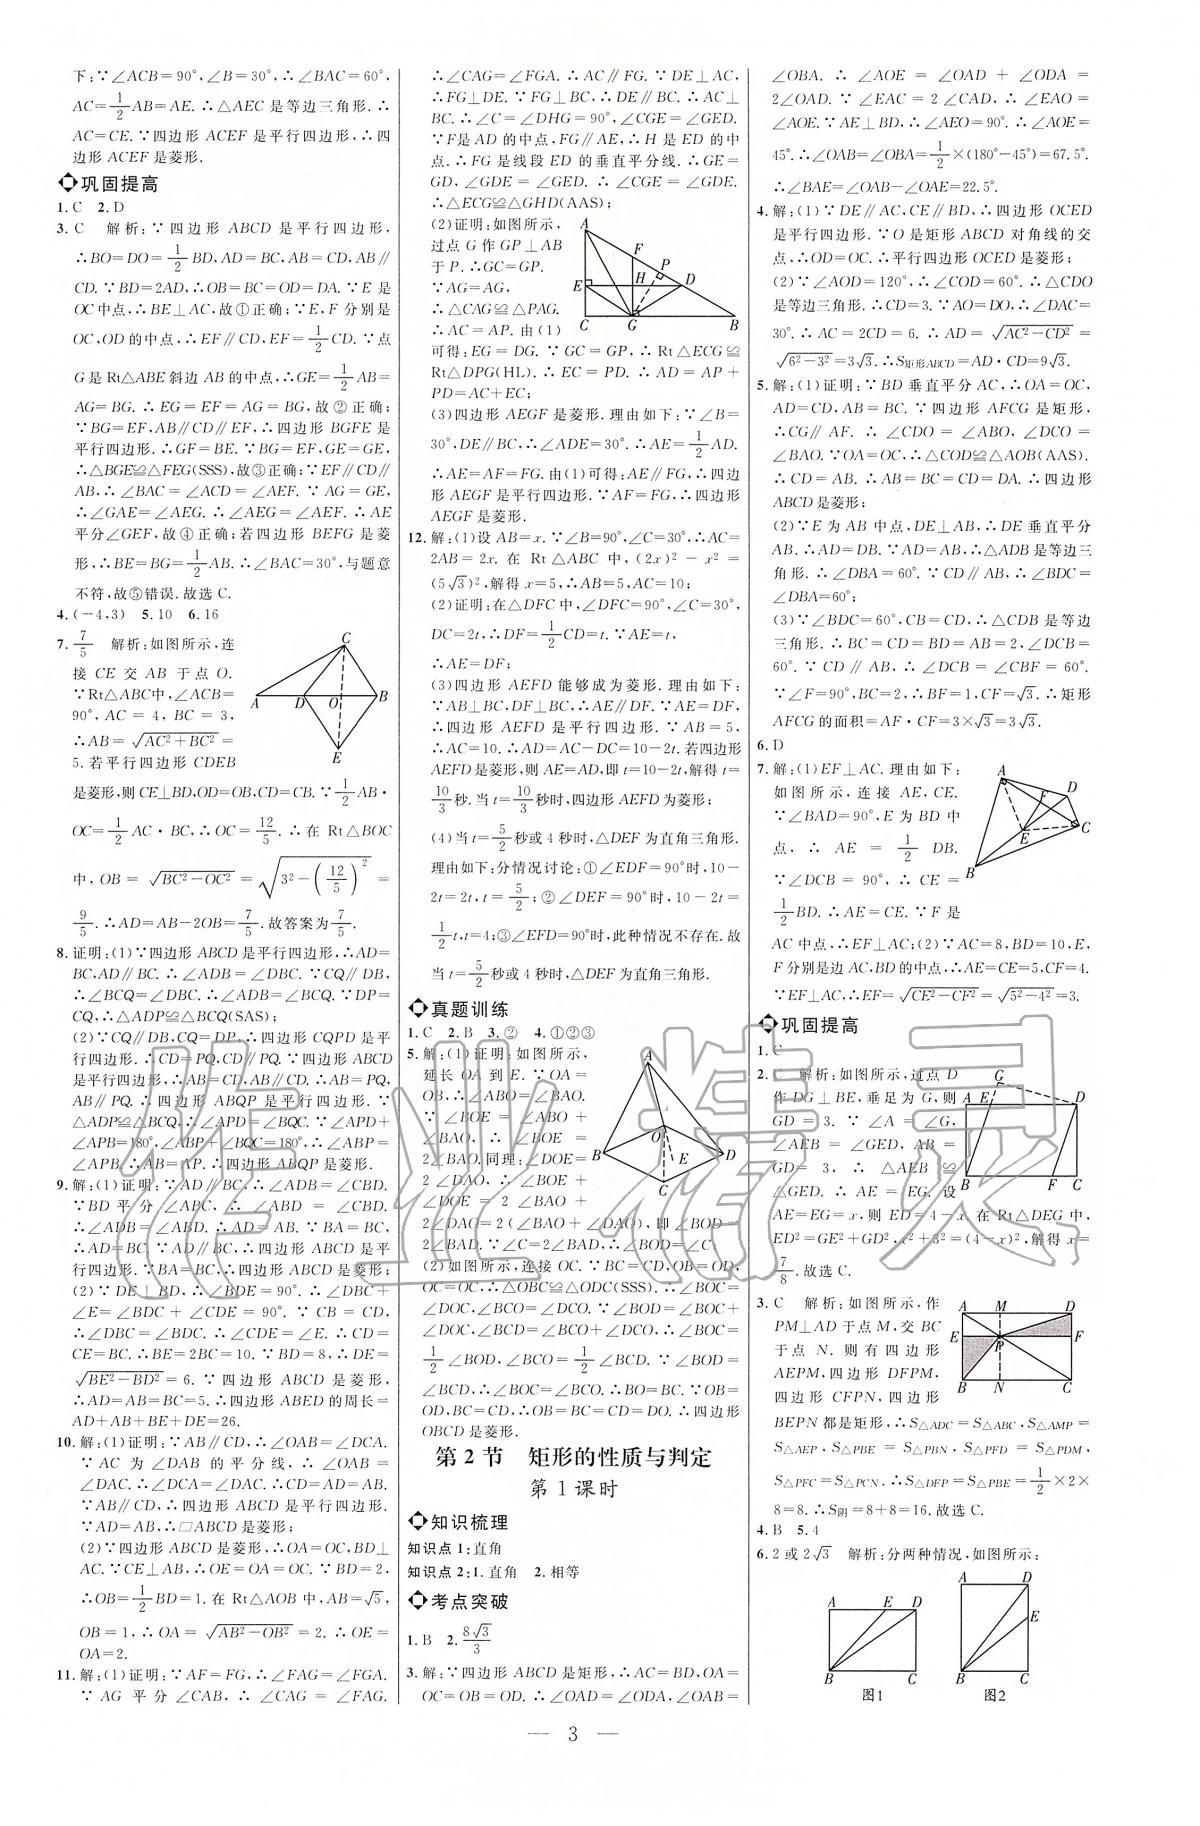 下:∵∠ACB=90°,∠B=30°,∴∠BAC=60°,
AC=1/2AB=AE.∴△AEC是等边三角形.∴
AC=CE.∵四边形ACEF是平行四边形,∴四
边形ACEF是菱形.
巩固提高
1.C 2.D
3.C 解析:∵四边形ABCD是平行四边形,
∴BO=DO=1/2BD,AD=BC,AB=CD,AB∥
CD.∵BD=2AD,∴OB=BC=OD=DA.∵E是
OC中点,∴BE⊥AC,故①正确;∵E,F分别是
OC,OD的中点,∴EF∥CD,EF=1/2CD.∵点
G是Rt△ABE斜边AB的中点,∴GE=1/2AB=
AG=BG.∴EG=EF=AG=BG,故②正确;
∵BG=EF,AB∥CD∥EF,∴四边形BGFE是
平行四边形.∴GF=BE.∵BG=EF,GE=GE,
∴△BGE≌△FEG(SSS),故③正确;∵EF∥CD∥
AB,∴∠BAC=∠ACD=∠AEF.∵AG=GE,
∴∠GAE=∠AEG.∴∠AEG=∠AEF.∴AE
平分∠GEF,故④正确;若四边形BEFG是菱
形,∴BE=BG=1/2AB.∴∠BAC=30°,与题意
不符,故⑤错误.故选C.
4.(-4,3) 5.10 6.16
7.7/5 解析:如图所示,连
接CE交AB于点O.
∵Rt△ABC中,∠ACB=
90°,AC=4,BC=3,
∴AB=√(AC²+BC²)=
5.若平行四边形CDEB
是菱形,则CE⊥BD,OD=OB,CD=CB.∵1/2AB·
OC=1/2AC·BC,∴OC=12/5.∴在Rt△BOC
中,OB=√(BC²-OC²)=√(3²-(12/5)²)=
9/5.∴AD=AB-2OB=7/5.故答案为7/5.
8.证明:(1)∵四边形ABCD是平行四边形,∴AD=
BC,AD∥BC.∴∠ADB=∠DBC.∵CQ∥DB,
∴∠BCQ=∠DBC.∴∠ADB=∠BCQ.∵DP=
CQ,∴△ADP≌△BCQ(SAS);
(2)∵CQ∥DB,CQ=DP,∴四边形CQPD是平
行四边形.∴CD=PQ,CD∥PQ.∵四边形ABCD
是平行四边形,∴AB=CD,AB∥CD.∴AB=PQ,
AB∥PQ.∴四边形ABQP是平行四边形.∵
△ADP≌△BCQ,∴∠APD=∠BQC.∵∠APD+
∠APB=180°,∴∠ABP+∠BQC=180°,∴∠ABP=
∠APB.∴AB=AP.∴四边形ABQP是菱形.
9.解:(1)证明:∵AD∥BC,∴∠ADB=∠CBD.
∵BD平分∠ABC,∴∠ABD=∠CBD.
∴∠ADB=∠ABD.∴AD=AB.∵BA=BC,
∴AD=BC.∵AD∥BC,∴四边形ABCD是平
行四边形.∵BA=BC,∴四边形ABCD是菱形;
(2)∵DE⊥BD,∴∠BDE=90°.∴∠DBC+
∠E=∠BDC+∠CDE=90°.∵CB=CD,
∴∠DBC=∠BDC.∴∠CDE=∠E.∴CD=
CE=BC.∴BE=2BC=10.∵BD=8,∴DE=
√(BE²-BD²)=6.∵四边形ABCD是菱形,
∴AD=AB=BC=5.∴四边形ABED的周长=
AD+AB+BE+DE=26.
10.解:(1)证明:∵AB∥CD,∴∠OAB=∠DCA.
∵AC为∠DAB的平分线,∴∠OAB=
∠DAC.∴∠DCA=∠DAC.∴CD=AD=AB.
∵AB∥CD,∴四边形ABCD是平行四边形.
∵AD=AB,∴▱ABCD是菱形;
(2)∵四边形ABCD是菱形,∴OA=OC,BD⊥
AC.∵CE⊥AB,∴OE=OA=OC.∵BD=2,
∴OB=1/2BD=1.在Rt△AOB中,AB=√5,
OB=1,∴OA=√(AB²-OB²)=2.∴OE=
OA=2.
11.解:(1)证明:∵AF=FG,∴∠FAG=∠FGA.
∵AG平分∠CAB,∴∠CAG=∠FAG.
∴∠CAG=∠FGA.∴AC∥FG.∵DE⊥AC,
∴FG⊥DE.∵FG⊥BC,∴DE∥BC.∴AC⊥
BC.∴∠C=∠DHG=90°,∠CGE=∠GED.
∵F是AD的中点,FG∥AE,∴H是ED的中
点.∴FG是线段ED的垂直平分线.∴GE=
GD,∠GDE=∠GED.∴∠CGE=∠GDE.
∴△ECG≌△GHD(AAS);
(2)证明:如图所示,
过点G作GP⊥AB
于P.∴GC=GP.
∵AG=AG,
∴△CAG≌△PAG.
∴AC=AP.由(1)
可得:EG=DG.∵GC=GP,∴Rt△ECG≌
Rt△DPG(HL).∴EC=PD.∴AD=AP+
PD=AC+EC;
(3)四边形AEGF是菱形.理由如下:∵∠B=
30°,DE∥BC,∴∠ADE=30°.∴AE=1/2AD.
∴AE=AF=FG.由(1)可得:AE∥FG,∴四边
形AEGF是平行四边形.∵AF=FG,∴四边形
AEGF是菱形.
12.解:(1)设AB=x.∵∠B=90°,∠C=30°,∴AC=
2AB=2x.在Rt△ABC中,(2x)²-x²=
(5√3)²,解得x=5,∴AB=5,AC=10;
(2)证明:在△DFC中,∠DFC=90°,∠C=30°,
DC=2t,∴DF=1/2CD=t.∵AE=t,
∴AE=DF;
(3)四边形AEFD能够成为菱形.理由如下:
∵AB⊥BC,DF⊥BC,∴AE∥DF.∵AE=DF,
∴四边形AEFD是平行四边形.∵AB=5,
∴AC=10.∴AD=AC-DC=10-2t.若四边形
AEFD是菱形,则AE=AD,即t=10-2t,解得t=
10/3秒.当t=10/3秒时,四边形AEFD为菱形;
(4)当t=5/2秒或4秒时,△DEF为直角三角形.
理由如下:分情况讨论:①∠EDF=90°时,10-
2t=2t,t=5/2;②∠DEF=90°时,10-2t=
1/2t,t=4;③∠EFD=90°时,此种情况不存在.故
当t=5/2秒或4秒时,△DEF为直角三角形.
真题训练
1.C 2.B 3.② 4.①②③
5.解:(1)证明:如图所示,
延长OA到E.∵OA=
OB,∴∠ABO=∠BAO.
∵∠BOE=∠ABO+
∠BAO,∴∠BOE=
2∠BAO.同理:∠DOE=
2∠DAO.∴∠BOE+
∠DOE=2∠BAO+
2∠DAO=2(∠BAO+∠DAO),即∠BOD=
2∠BAD.∵∠C=2∠BAD,∴∠BOD=∠C;
(2)如图所示,连接OC.∵BC=CD,OB=OD,
OC=OC,∴△OBC≌△ODC(SSS).∴∠BOC=
∠DOC,∠BCO=∠DCO.∵∠BOD=∠BOC+
∠DOC,∠BCD=∠BCO+∠DCO,∴∠BOC=
1/2∠BOD,∠BCO=1/2∠BCD.∵∠BOD=
∠BCD,∴∠BOC=∠BCO.∴BO=BC.∵OB=
OD,BC=CD,∴OB=BC=CD=DO.∴四边形
OBCD是菱形.
第2节 矩形的性质与判定
第1课时
知识梳理
知识点1:直角
知识点2:1.直角 2.相等
考点突破
1.B 2.8√3/3
3.解:∵四边形ABCD是矩形,∴AC=BD,OA=
OC=OB=OD.∴∠OAD=∠ODA,∠OAB=
∠OBA.∴∠AOE=∠OAD+∠ODA=
2∠OAD.∵∠EAC=2∠CAD,∴∠EAO=
∠AOE.∵AE⊥BD,∴∠AEO=90°.∴∠AOE=
45°.∴∠OAB=∠OBA=1/2×(180°-45°)=67.5°.
∴∠BAE=∠OAB-∠OAE=22.5°.
4.解:(1)∵DE∥AC,CE∥BD,∴四边形OCED
是平行四边形.∵O是矩形ABCD对角线的交
点,∴OD=OC.∴平行四边形OCED是菱形;
(2)∵∠AOD=120°,∴∠COD=60°.∴△CDO
是等边三角形.∴CD=3.∵AO=DO,∴∠DAC=
30°.∴AC=2CD=6.∴AD=√(AC²-CD²)=
√(6²-3²)=3√3.∴S矩形ABCD=AD·CD=9√3.
5.解:(1)证明:∵BD垂直平分AC,∴OA=OC,
AD=CD,AB=BC.∵四边形AFCG是矩形,
∴CG∥AF.∴∠CDO=∠ABO,∠DCO=
∠BAO.∵OA=OC,∴△COD≌△AOB(AAS).
∴CD=AB.∴AB=BC=CD=DA.∴四边形
ABCD是菱形;
(2)∵E为AB中点,DE⊥AB,∴DE垂直平分
AB.∴AD=DB.∵AD=AB,∴△ADB是等边三
角形.∴∠DBA=60°.∵CD∥AB,∴∠BDC=
∠DBA=60°;
(3)∵∠BDC=60°,CB=CD,∴△CDB是等边
三角形.∴BC=CD=BD=AB=2,∠DCB=
60°.∵CD∥AB,∴∠DCB=∠CBF=60°.
∵∠F=90°,BC=2,∴BF=1,CF=√3.∴矩形
AFCG的面积=AF·CF=3×√3=3√3.
6.D
7.解:(1)EF⊥AC.理由如下:
如图所示,连接AE,CE.
∵∠BAD=90°,E为BD中
点,∴AE=1/2DB.
∵∠DCB=90°,∴CE=
1/2BD.∴AE=CE.∵F是
AC中点,∴EF⊥AC;(2)∵AC=8,BD=10,E,
F分别是边AC,BD的中点,∴AE=CE=5,CF=4.
∵EF⊥AC,∴EF=√(CE²-CF²)=√(5²-4²)=3.
巩固提高
1.C
2.C 解析:如图所示,过点D
作DG⊥BE,垂足为G,则
GD=3.∵∠A=∠G,
∠AEB=∠GED,AB=
GD=3,∴△AEB≌
△GED.∴AE=EG.设
AE=EG=x,则ED=4-x.在Rt△DEG中,
ED²=GE²+GD²,x²+3²=(4-x)²,解得x=
7/8.故选C.
3.C 解析:如图所示,作
PM⊥AD于点M,交BC
于点N.则有四边形
AEPM,四边形DFPM,
四边形CFPN,四边形
BEPN都是矩形,∴S△ADC=S△ABC,S△AMP=
S△AEP,S△PBE=S△PBN,S△PFD=S△PDM,
S△PFC=S△PCN,∴S△DFP=S△PBE=1/2×2×
8=8.∴S阴=8+8=16.故选C.
4.B 5.4
6.2或2√3 解析:分两种情况,如图所示:
图1 图2
— 3 —
作业精灵